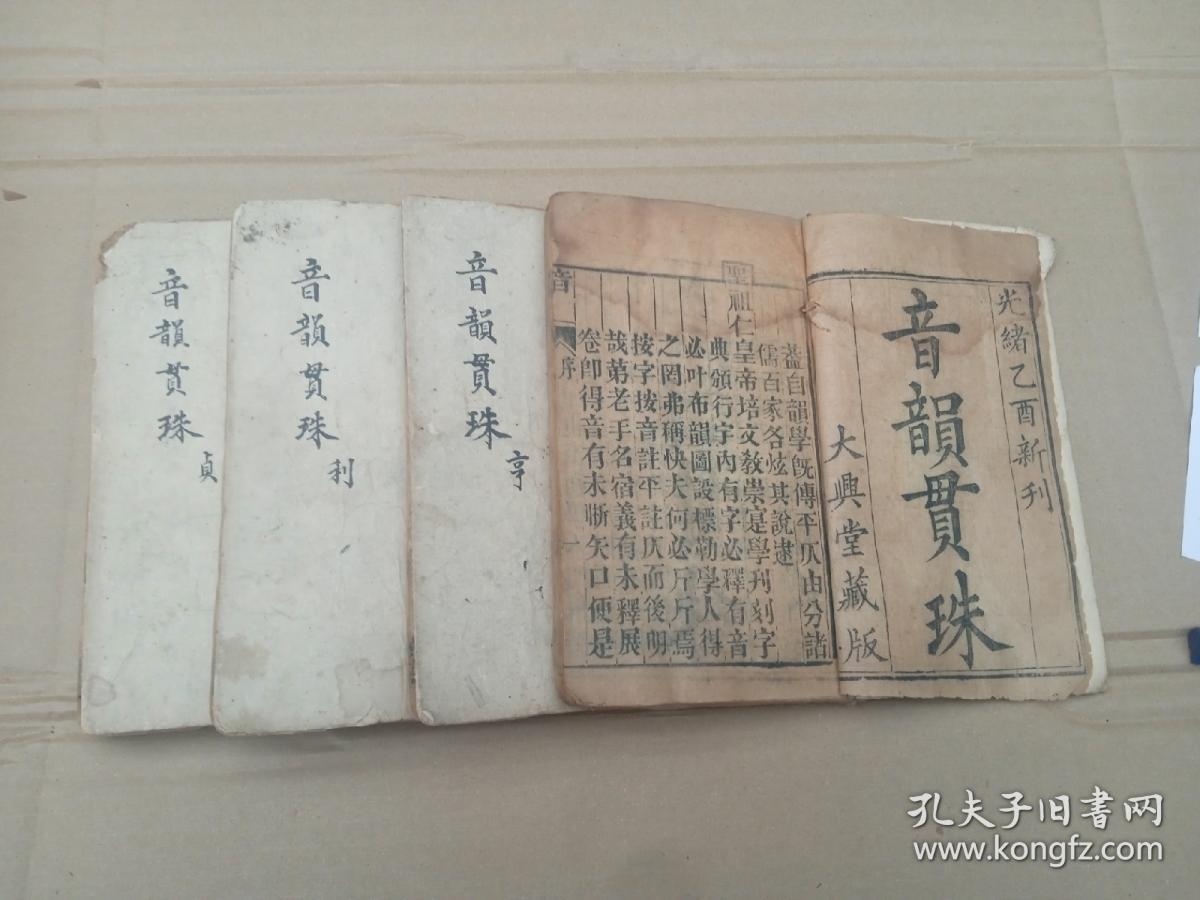 光緒乙酉新刊
音韻貫珠
大興堂藏版
蓋自韻學既傳平仄由分諸
儒百家各炫其說逮
聖祖仁皇帝培文教崇寔學刊刻字
典頒行宇內有字必釋有音
必叶布韻圖設標勒學人得
之罔弗稱快夫何必斤斤焉
按字按音註平註仄而後明
哉第老手名宿義有未釋展
卷卽得音有未晰矢口便是
音
序
一
音韻貫珠
亨
音韻貫珠
利
音韻貫珠
貞
孔夫子旧书网
www.kongfz.com